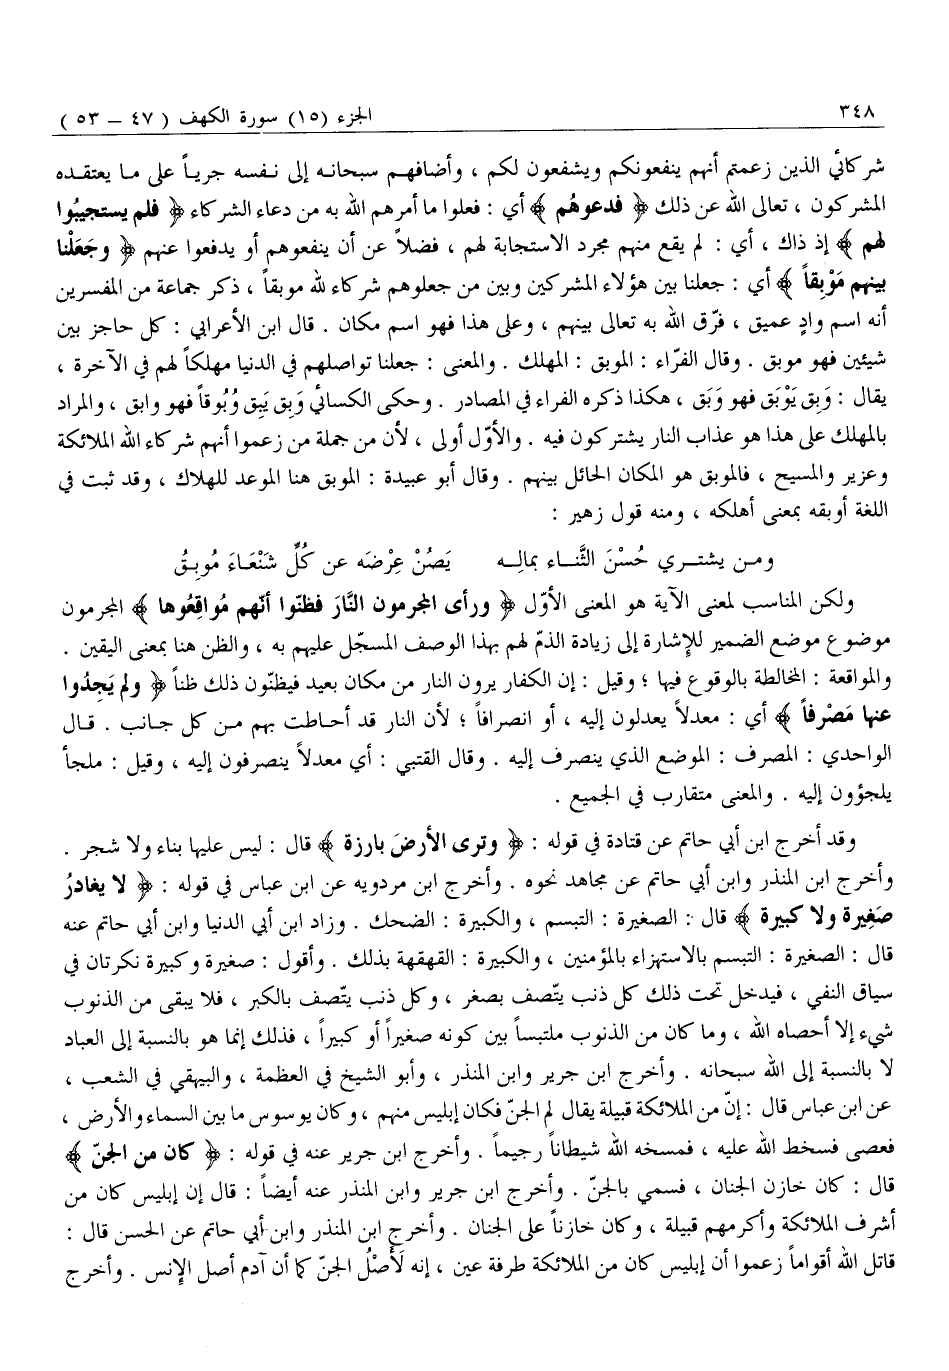 ٣٤٨ الجزء (١٥) سورة الكهف ( ٤٧ – ٥٣ )
شركائي الذين زعمتم أنهم ينفعونكم ويشفعون لكم ، وأضافهم سبحانه إلى نفسه جرياً على ما يعتقده
المشركون ، تعالى الله عن ذلك ﴿ فدعوهُم ﴾ أي : فعلوا ما أمرهم الله به من دعاء الشركاء ﴿ فلم يستجيبُوا
لهم ﴾ إذ ذاك ، أي : لم يقع منهم مجرد الاستجابة لهم ، فضلاً عن أن ينفعوهم أو يدفعوا عنهم ﴿ وجَعَلْنا
بينهم مَوْبِقاً ﴾ أي : جعلنا بين هؤلاء المشركين وبين من جعلوهم شركاء لله موبقاً ، ذكر جماعة من المفسرين
أنه اسم وادٍ عميق ، فرّق الله به تعالى بينهم ، وعلى هذا فهو اسم مكان . قال ابن الأعرابي : كل حاجز بين
شيئين فهو موبق . وقال الفرّاء : الموبق : المهلك . والمعنى : جعلنا تواصلهم في الدنيا مهلكاً لهم في الآخرة ،
يقال : وَبِق يَوْبَق فهو وَبَق ، هكذا ذكره الفراء في المصادر . وحكى الكسائي وَبِق يَبِق وُبُوقاً فهو وابق ، والمراد
بالمهلك على هذا هو عذاب النار يشتركون فيه . والأوّل أولى ، لأن من جملة من زعموا أنهم شركاء الله الملائكة
وعزير والمسيح ، فالموبق هو المكان الحائل بينهم . وقال أبو عبيدة : الموبق هنا الموعد للهلاك ، وقد ثبت في
اللغة أوبقه بمعنى أهلكه ، ومنه قول زهير :
ومـن يشتـري حُسْنَ الثَّنـاء بمالِـه يَصُنْ عِرْضَه عن كُلِّ شَنْعَاءَ مُوبِـقُ
ولكن المناسب لمعنى الآية هو المعنى الأوّل ﴿ ورأى المجرمون النَّارَ فظنّوا أنّهم مُواقِعُوها ﴾ المجرمون
موضوع موضع الضمير للإشارة إلى زيادة الذمّ لهم بهذا الوصف المسجّل عليهم به ، والظن هنا بمعنى اليقين .
والمواقعة : المخالطة بالوقوع فيها ؛ وقيل : إن الكفار يرون النار من مكان بعيد فيظنّون ذلك ظناً ﴿ ولم يَجِدُوا
عنها مَصْرفاً ﴾ أي : معدلاً يعدلون إليه ، أو انصرافاً ؛ لأن النار قد أحـاطت بهم مـن كل جـانب . قـال
الواحدي : المصرف : الموضع الذي ينصرف إليه . وقال القتبي : أي معدلاً ينصرفون إليه ، وقيل : ملجأ
يلجؤون إليه . والمعنى متقارب في الجميع .
وقد أخرج ابن أبي حاتم عن قتادة في قوله : ﴿ وترى الأرضَ بارزة ﴾ قال : ليس عليها بناء ولا شجر .
وأخرج ابن المنذر وابن أبي حاتم عن مجاهد نحوه . وأخرج ابن مردويه عن ابن عباس في قوله : ﴿ لا يغادرُ
صَغِيرة ولا كبيرة ﴾ قال : الصغيرة : التبسم ، والكبيرة : الضحك . وزاد ابن أبي الدنيا وابن أبي حاتم عنه
قال : الصغيرة : التبسم بالاستهزاء بالمؤمنين ، والكبيرة : القهقهة بذلك . وأقول : صغيرة وكبيرة نكرتان في
سياق النفي ، فيدخل تحت ذلك كل ذنب يتّصف بصغر ، وكل ذنب يتّصف بالكبر ، فلا يبقى من الذنوب
شيء إلا أحصاه الله ، وما كان من الذنوب ملتبساً بين كونه صغيراً أو كبيراً ، فذلك إنما هو بالنسبة إلى العباد
لا بالنسبة إلى الله سبحانه . وأخرج ابن جرير وابن المنذر ، وأبو الشيخ في العظمة ، والبيهقي في الشعب ،
عن ابن عباس قال : إنّ من الملائكة قبيلة يقال لهم الجنّ فكان إبليس منهم ، وكان يوسوس ما بين السماء والأرض ،
فعصى فسخط الله عليه ، فمسخه الله شيطاناً رجيماً . وأخرج ابن جرير عنه في قوله : ﴿ كان من الجنّ ﴾
قال : كان خازن الجنان ، فسمي بالجنّ . وأخرج ابن جرير وابن المنذر عنه أيضاً : قال إن إبليس كان من
أشرف الملائكة وأكرمهم قبيلة ، وكان خازناً على الجنان . وأخرج ابن المنذر وابن أبي حاتم عن الحسن قال :
قاتل الله أقواماً زعموا أن إبليس كان من الملائكة طرفة عين ، إنه لَأَصْلُ الجنّ كما أن آدم أصل الإنس . وأخرج